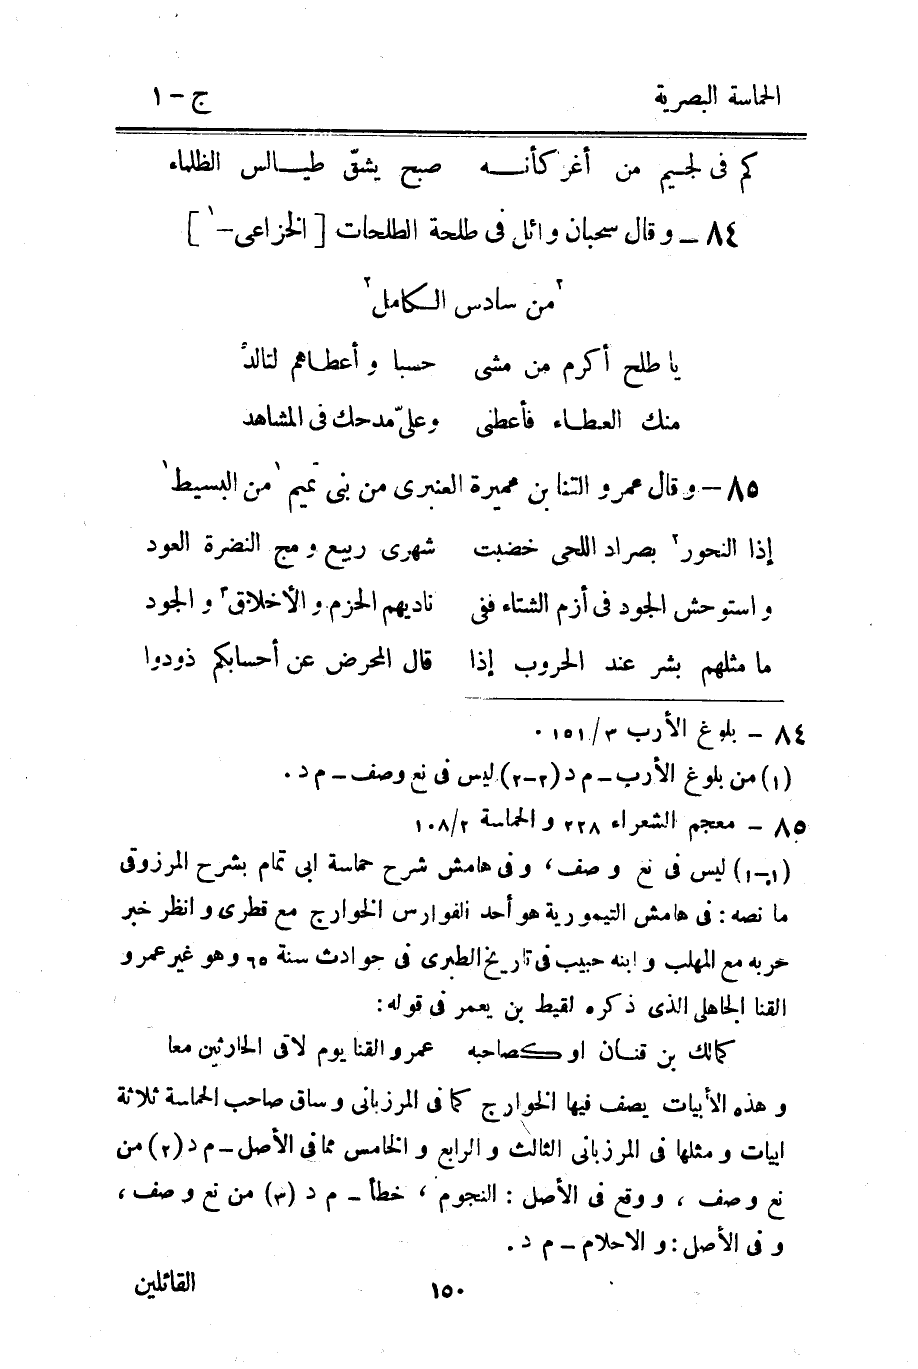 الحماسة البصرية ج – ١
كم فى لجسيم من أغر كأنـــه صبح يشقّ طيـالس الظلماء
٨٤ – و قال سحبان وائل فى طلحة الطلحات [ الخزاعى –١ ]
٢من سادس الكامل٢
يا طلح أكرم من مشى حسبا و أعطـاهم لتالدْ
منك العطـاء فأعطنى وعلىّ مدحك فى المشاهد
٨٥ – و قال عمرو القنا بن عميرة العنبرى من بنى تميم ١من البسيط١
إذا النحور٢ بصراد اللحى خضبت شهرى ربيع و مج النضرة العود
و استوحش الجود فى أزم الشتاء ففى ناديهم الحزم و الأخلاق٣ و الجود
ما مثلهم بشر عند الحروب إذا قال المحرض عن أحسابكم ذودوا
٨٤ – بلوغ الأرب ٣/١٥١ .
(١) من بلوغ الأرب – م د (٢–٢) ليس فى نع وصف – م د .
٨٥ – معجم الشعراء ٢٢٨ و الحماسة ١٠٨/٢
(١–١) ليس فى نع و صف ، و فى هامش شرح حماسة ابى تمام بشرح المرزوقى
ما نصه : فى هامش التيمورية هو أحد الفوارس الخوارج مع قطرى و انظر خبر
حربه مع المهلب و ابنه حبيب فى تاريخ الطبرى فى حوادث سنة ٦٥ وهو غير عمرو
القنا الجاهلى الذى ذكره لقيط بن يعمر فى قوله :
كمالك بن قنـان او كصاحبه عمرو القنا يوم لاقى الحارثين معا
و هذه الأبيات يصف فيها الخوارج كما فى المرزبانى و ساق صاحب الحماسة ثلاثة
ابيات و مثلها فى المرزبانى الثالث و الرابع و الخامس مما فى الأصل – م د (٢) من
نع و صف ، و وقع فى الأصل : النجوم ، خطأ – م د (٣) من نع و صف ،
و فى الأصل : و الاحلام – م د .
١٥٠ القائلين